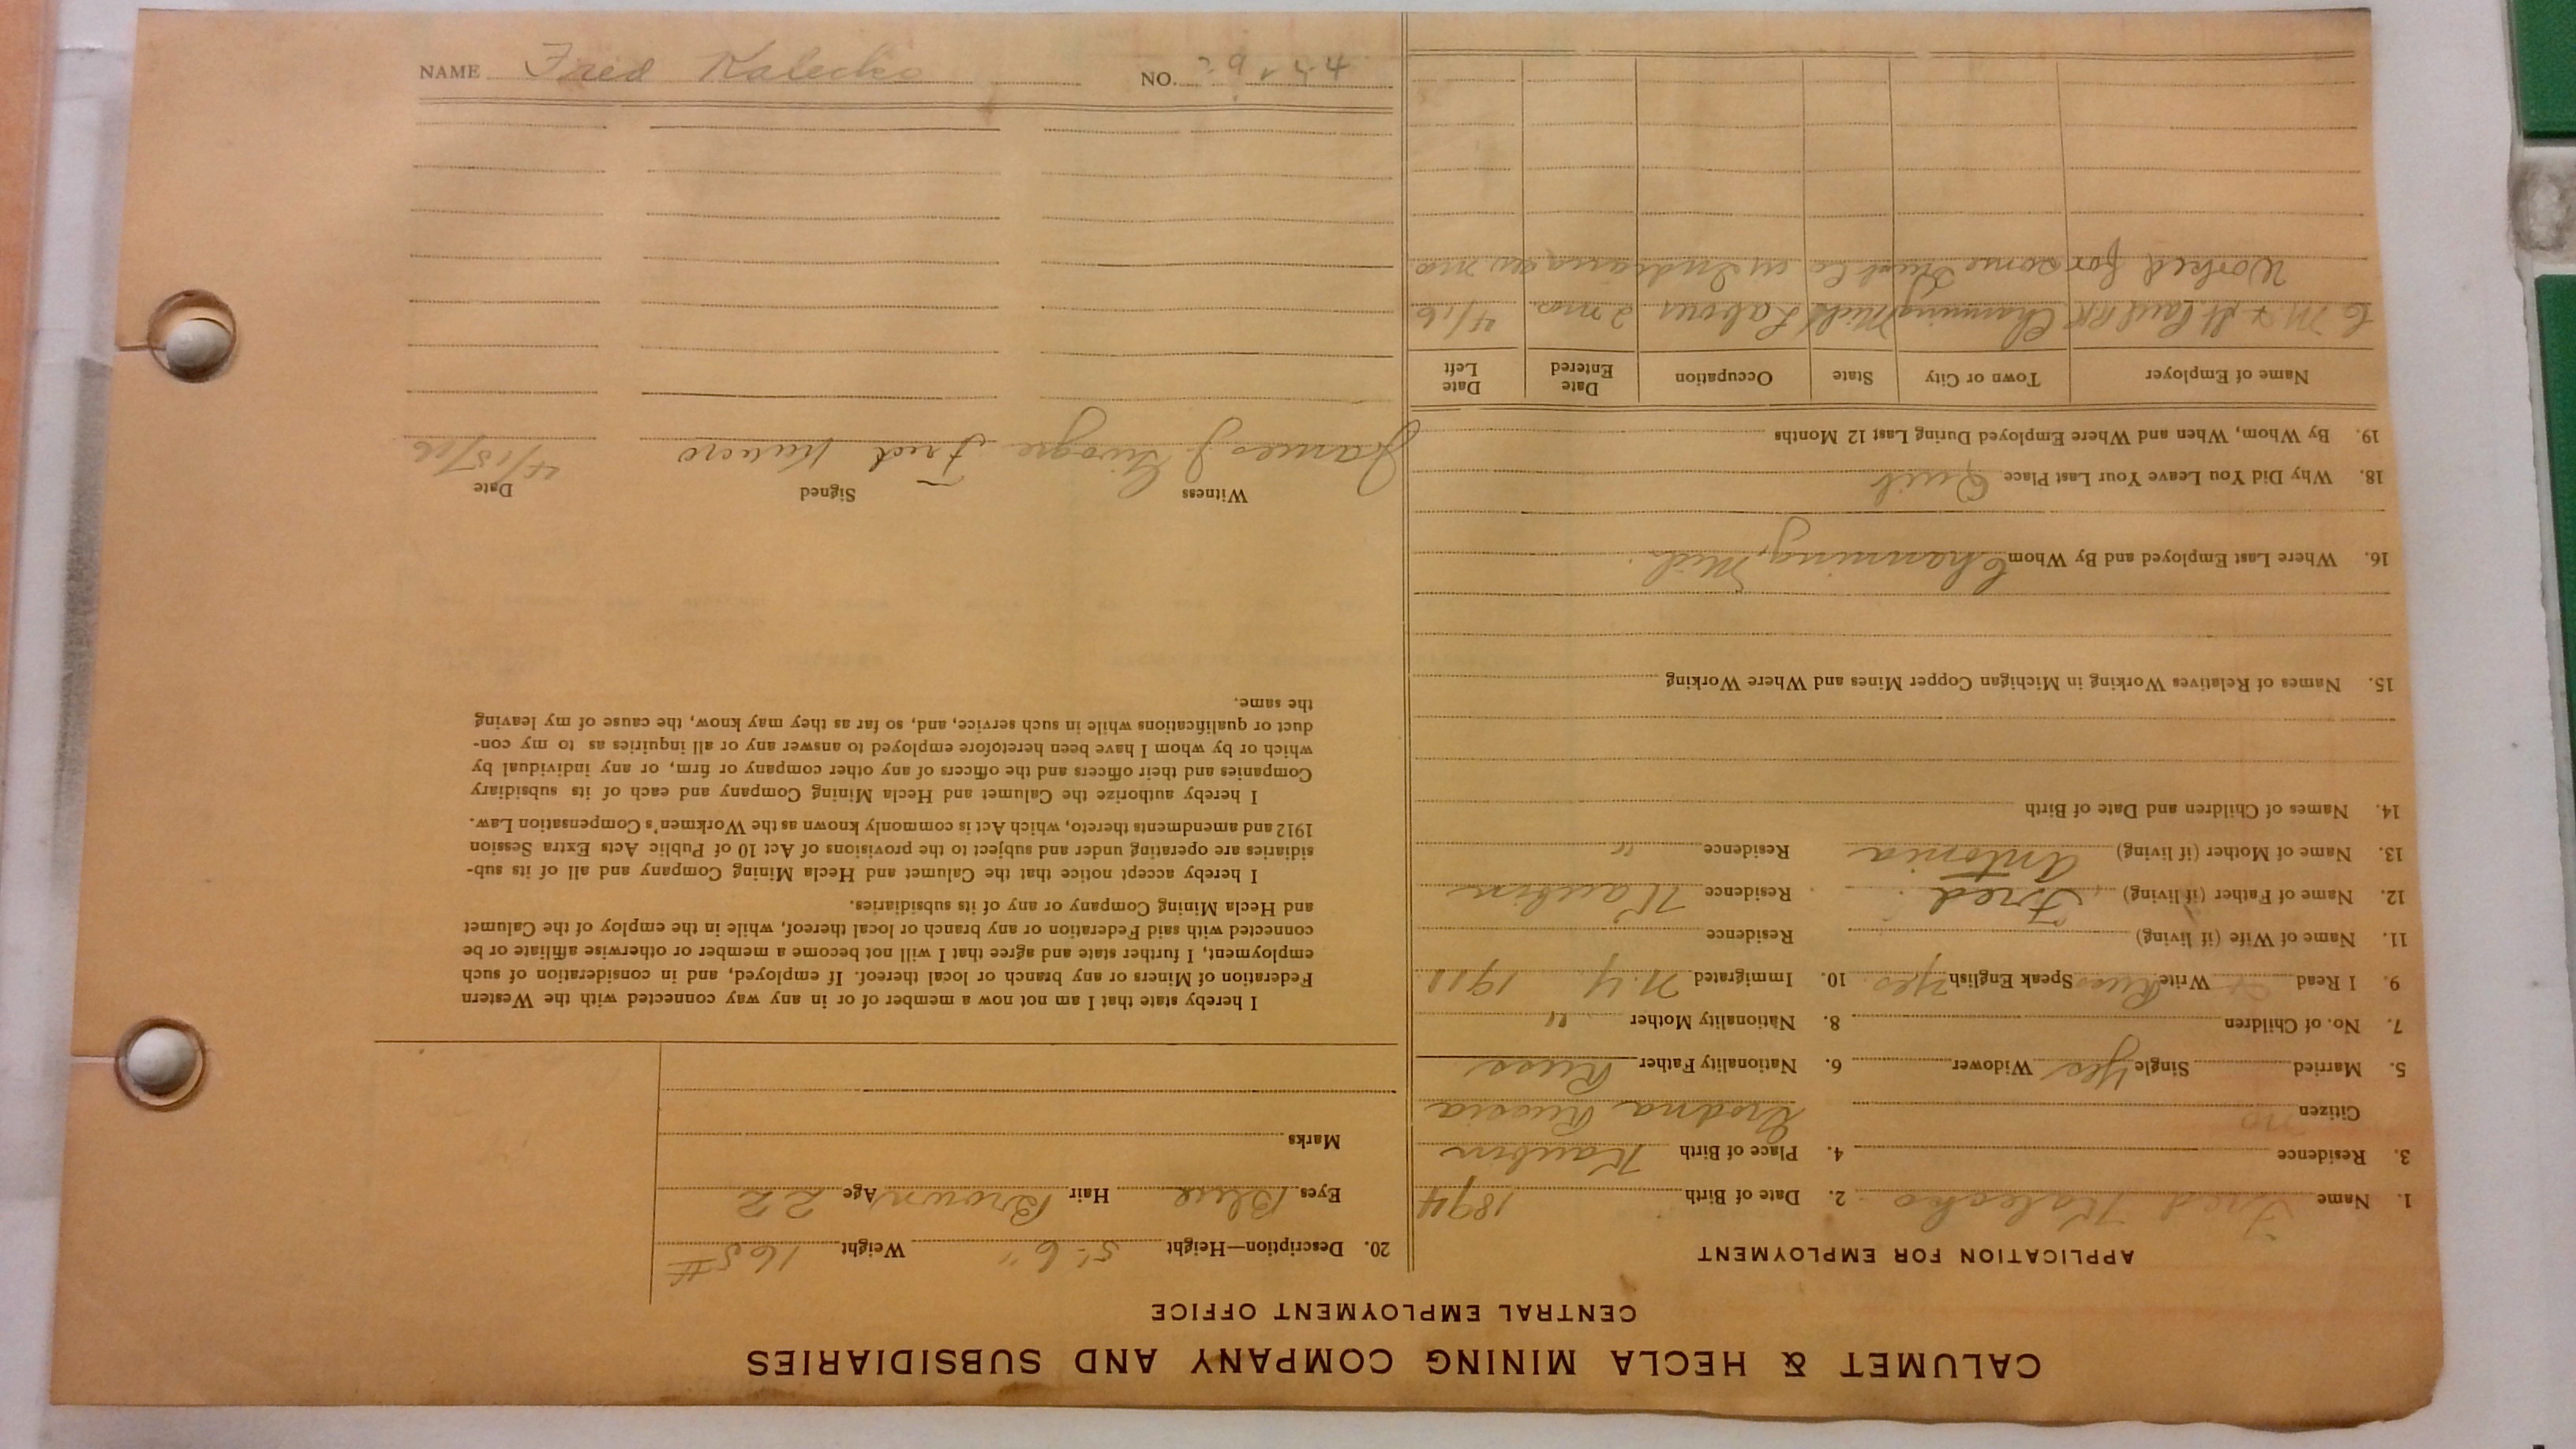 CALUMET & HECLA MINING COMPANY AND SUBSIDIARIES
CENTRAL EMPLOYMENT OFFICE
APPLICATION FOR EMPLOYMENT
1. Name Fred Kalecko 2. Date of Birth 1894
3. Residence 4. Place of Birth
Citizen no Grodna Russia
5. Married Single Yes Widower 6. Nationality Father Russ
7. No. of Children 8. Nationality Mother "
9. I Read Write Russ Speak English Yes 10. Immigrated N.Y. 1911
11. Name of Wife (if living) Residence
12. Name of Father (if living) Fred Residence
13. Name of Mother (if living) Antonia Residence "
14. Names of Children and Date of Birth
15. Names of Relatives Working in Michigan Copper Mines and Where Working
16. Where Last Employed and By Whom Channing, Mich.
18. Why Did You Leave Your Last Place Quit
19. By Whom, When and Where Employed During Last 12 Months
Name of Employer Town or City State Occupation Date Entered Date Left
C M & St. Paul RR Channing Mich Labour 2 mos. 4/16
Worked for some Co in Indiana mo
20. Description—Height 5'-6" Weight 165#
Eyes Blue Hair Brown Age 22
Marks
I hereby state that I am not now a member of or in any way connected with the Western
Federation of Miners or any branch or local thereof. If employed, and in consideration of such
employment, I further state and agree that I will not become a member or otherwise affiliate or be
connected with said Federation or any branch or local thereof, while in the employ of the Calumet
and Hecla Mining Company or any of its subsidiaries.
I hereby accept notice that the Calumet and Hecla Mining Company and all of its sub-
sidiaries are operating under and subject to the provisions of Act 10 of Public Acts Extra Session
1912 and amendments thereto, which Act is commonly known as the Workmen's Compensation Law.
I hereby authorize the Calumet and Hecla Mining Company and each of its subsidiary
Companies and their officers and the officers of any other company or firm, or any individual by
which or by whom I have been heretofore employed to answer any or all inquiries as to my con-
duct or qualifications while in such service, and, so far as they may know, the cause of my leaving
the same.
Witness Signed Date
James J. Fred 4/15/16
NAME Fred Kalecko NO.